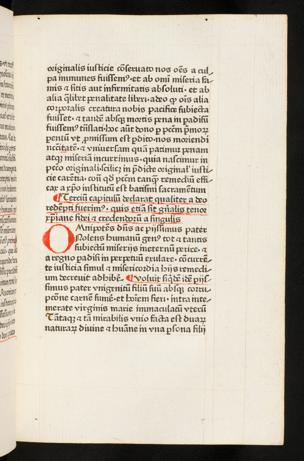 originalis iusticie cõseruato nos oẽs a cul
pa immunes fuissem⁹ · et ab omi miseria fa
mis ⁊ sitis aut infirmitatis absoluti · et ab
alia qͣlibet penalitate liberi · adeo qͥ oĩs alia
corporalis creatura nobis pacifice subiecta
fuisset · ⁊ tandẽ absqʒ mortis pena in padisũ
fuissem⁹ trãslati · hoc aũt bonо p pccm̃ pmoꝝ
pentũ vt pmissum est pdito · nos moriendi
necitatẽ · ⁊ vniuersam quã patimur penam
atqʒ miseriã incurrimus · quia nascimur in
pcco originali · scilicet in pdicte originalꝭ iusti
cie carẽtia · cõtͣ qd̃ pccm̃ tanqͣ remediũ effi-
cax a xp̃o institutũ est batismi sacramentum
¶ Terciũ capitulũ declarat qualiter a deo
redẽpti fuerim⁹ · quis etiã sit gñalis tenor
xp̃iane fidei ⁊ credendorũ a singulis
OMnipotẽs dñs ac pijssimus pater
Nolens humanũ genꝰ tot ⁊ tantis
subiectũ miserijs eternũ perire · ⁊
a regno padisi in perpetuũ exulare · cõcurrẽ-
te iusticia simul ⁊ misericordia hijs remedi-
um decreuit adhibẽ · ¶ Voluit siqͥdẽ idẽ pijs-
simus pater vnigenitũ filiũ suũ absqʒ corru-
pciõne carnẽ sumẽ · et hoĩem fieri · intra inte-
merate virginis marie immaculatũ vterũ
Tãtaqʒ ⁊ tã mirabilis vnio facta est duaꝝ
naturaꝝ diuine ⁊ huãne in vna psona filij